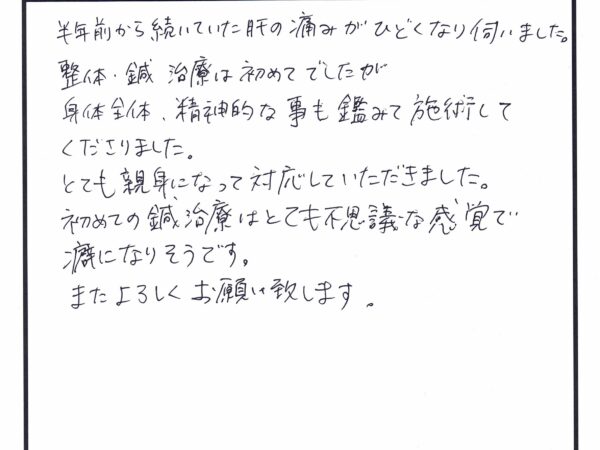 半年前から続いていた肝の痛みがひどくなり伺いました。
整体・鍼 治療は初めてでしたが
身体全体、精神的な事も鑑みて施術して
くださりました。
とても親身になって対応していただきました。
初めての鍼治療はとても不思議な感覚で
癖になりそうです。
またよろしくお願い致します。